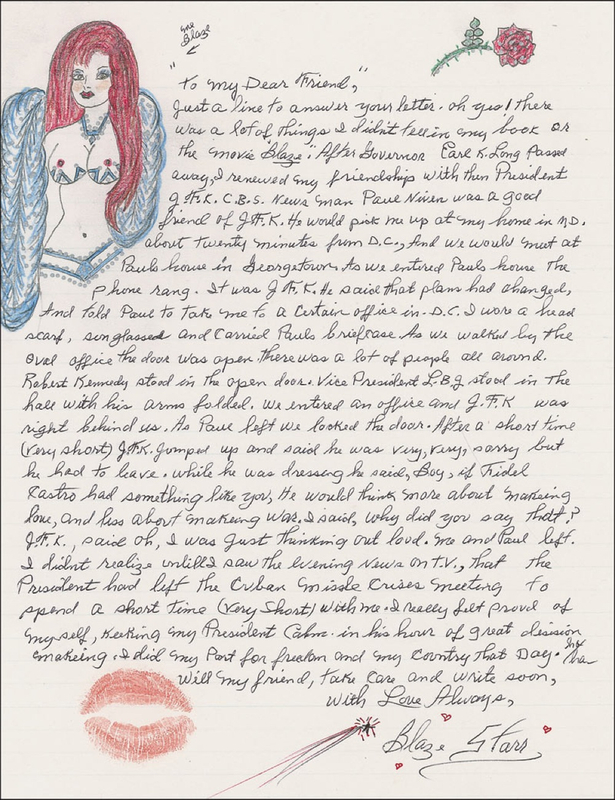 me
Blaze
"To my Dear Friend,"
Just a line to answer your letter. oh yes! there
was a lot of things I didn't tell in my book or
the movie "Blaze". After Governor Earl K. Long Passed
away, I renewed my friendship with then President
J.F.K. C.B.S. News man Paul Niven was a good
friend of J.F.K. He would pick me up at my home in MD.
about twenty minutes from D.C., And we would meet at
Pauls house in Georgetown. As we entered Pauls house The
phone rang. It was J.F.K. He said that plans had changed,
And told Paul to take me to a Certain office in D.C. I wore a head
scarf, sunglasses and carried Pauls briefcase. As we walked by the
oval office the door was open. there was a lot of people all around.
Robert Kennedy stood in the open door. Vice President L.B.J stood in the
hall with his arms folded. We entered an office and J.F.K was
right behind us. As Paul left we locked the door. After a short time
(very short) J.F.K. Jumped up and said he was very, very, sorry but
he had to leave. while he was dressing he said, Boy, if Fidel
Castro had something like you, He would think more about makeing
love, and less about makeing war. I said, why did you say that?
J.F.K., said oh, I was Just thinking out loud. me and Paul left.
I didnt realize untill I saw the evening news on T.V., that the
President had left the Cuban Missle Crises Meeting To
spend a short time (very short) with me. I really felt proud of
myself, Keeking my President Calm in his hour of great dision
makeing. I did my Part for freedom and my Country that Day.
Will my friend, take care and write soon,
With Love Always,
Blaze Starr